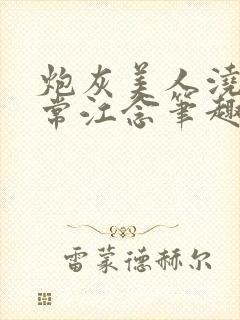 炮灰美人浇
常江念笔趣
雷蒙德赫尔